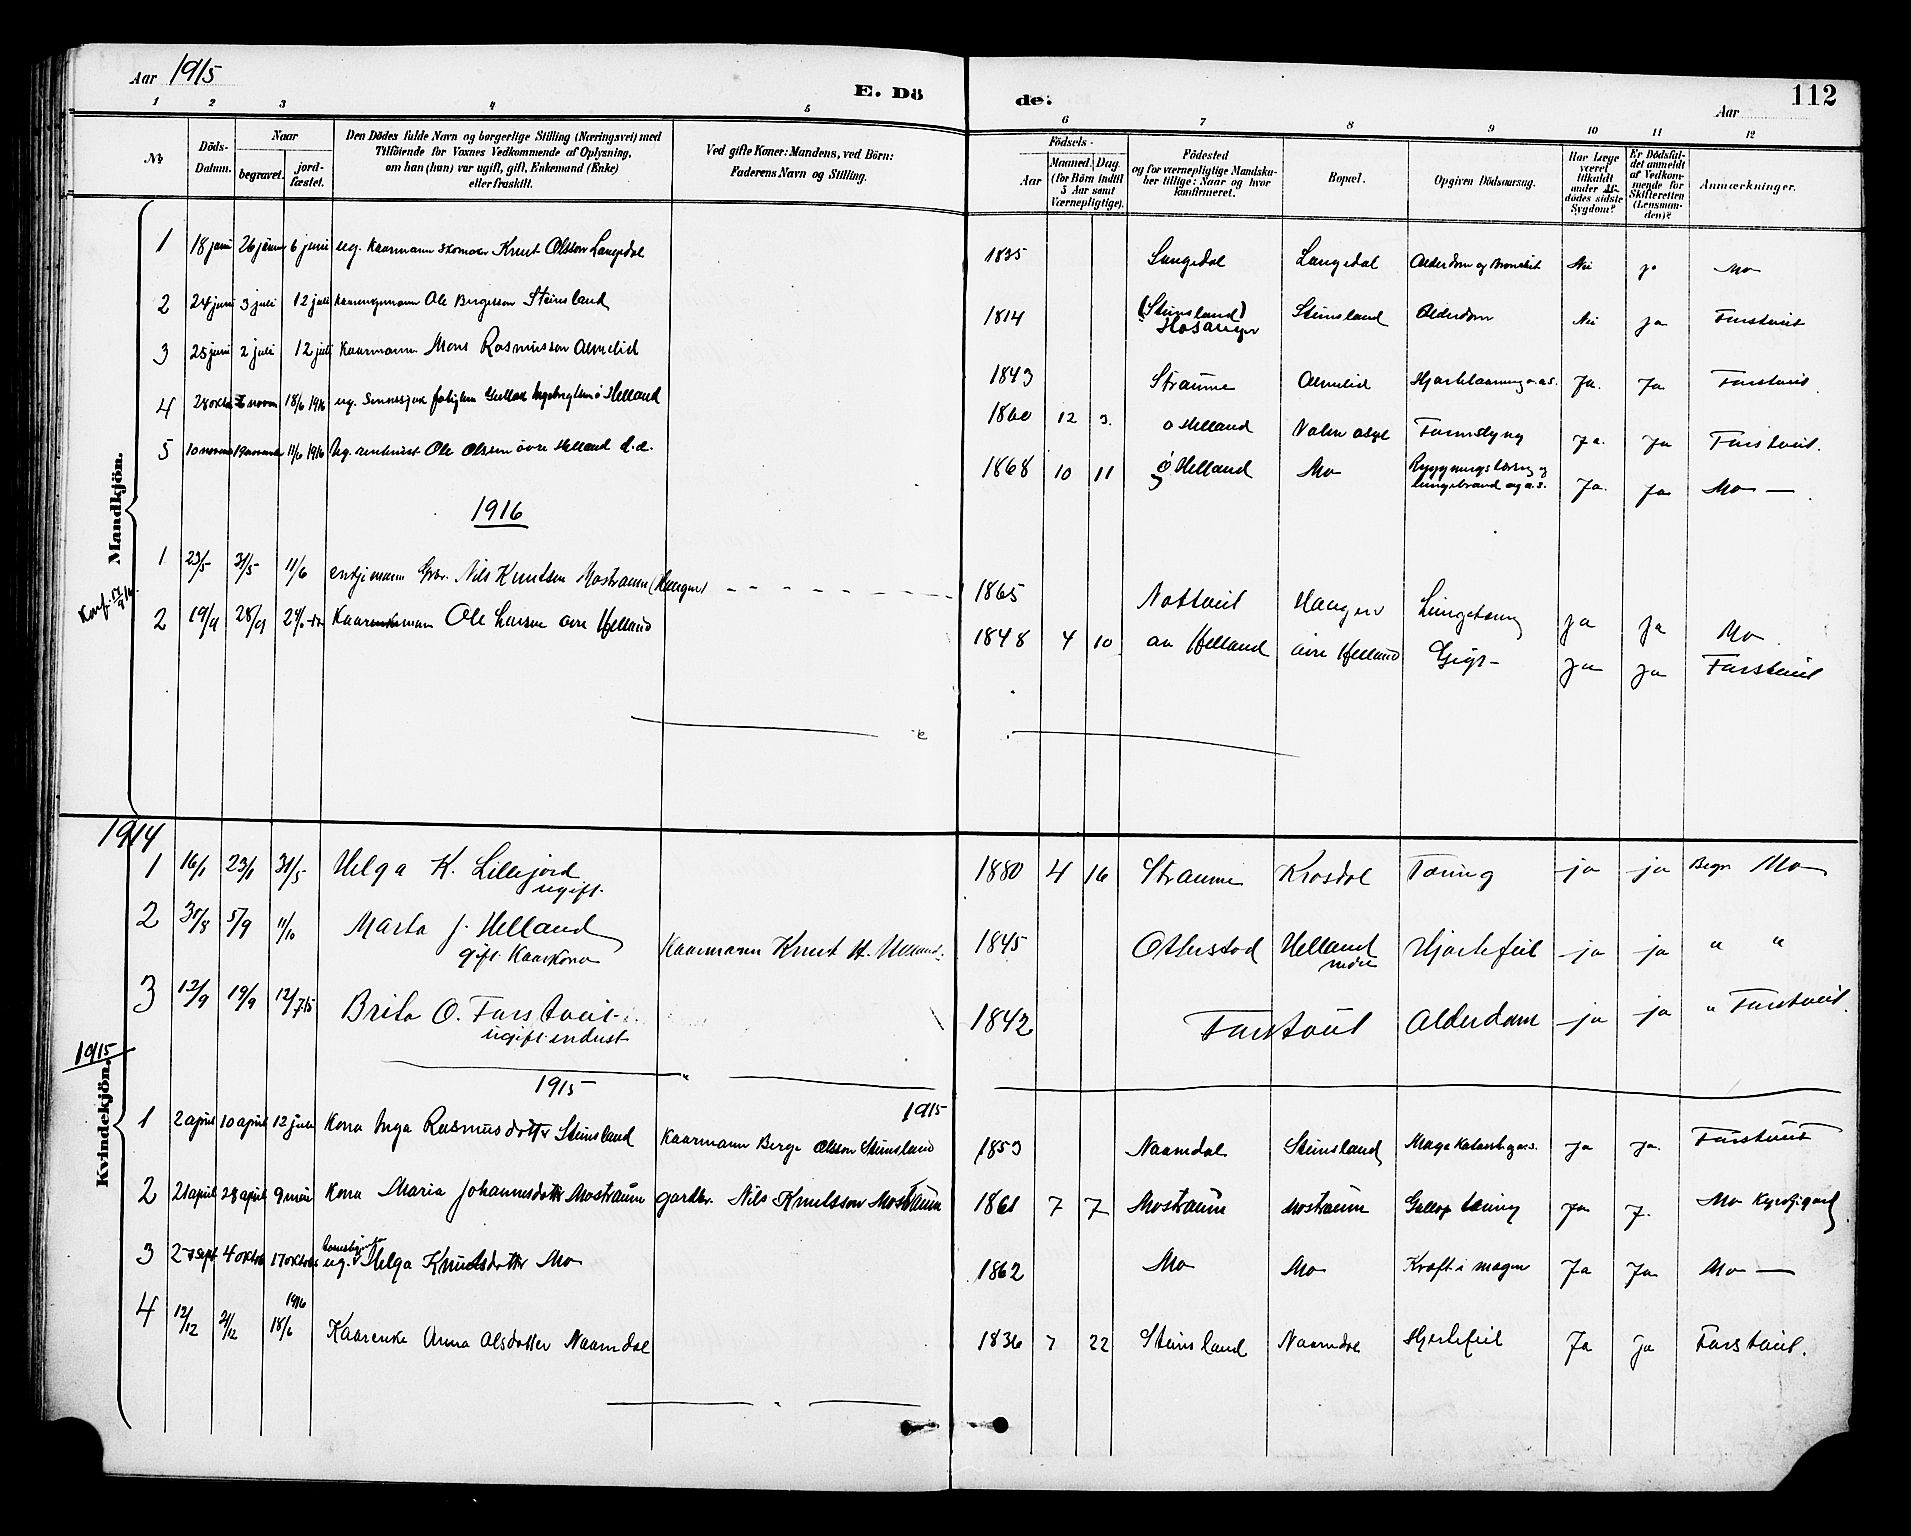 Aar 1915
E. Dö
de.
Aar
112
1 2 3 4 5 6 7 8 9 10 11 12
No
Döds-Datum.
Naar
begravet.
jord-fæstet.
Den Dödes fulde Navn og borgerlige Stilling (Næringsvei) med
Tilföiende for Voxnes Vedkommende af Oplysning,
om han (hun) var ugift, gift, Enkemand (Enke)
eller fraskilt.
Ved gifte Koner: Mandens, ved Börn:
Faderens Navn og Stilling.
Födsels-
Aar
Maaned. Dag.
(for Börn indtil 5 Aar samt Værnepligtige).
Födested
og for værnepligtige Mandska-
ber tillige: Naar og hvor
konfirmeret.
Bopæl.
Opgiven Dödsaarsag.
Har Læge været tilkaldt under Af-dödes sidste Sygdom?
Er Dödsfal-det anmeldt af Vedkom-mende for Skifteretten (Lensman-den)?
Anmærkninger.
Mandkjön.
1 18 juni 26 6 juni ug. Kaarmann skomaker Knut Olsson Langedal 1835 Langedal Langedal Alderdom og Bronkit Nei ja Mo
2 24 juni 3 juli 12 juli Ole Bergesson Steinsland 1814 (Steinsland) Hosanger Steinsland Alderdom Nei ja Farstveit
3 25 juni 2 juli 12 juli Kaarmann Mons Rasmusson Almelid 1843 Straume Almelid Hjartelaming o.a.s. Ja. Ja Farstveit
4 28 oktb novm 18/6 1916 ug. Helland 1860 12 3. ö Helland asyl Ja. Ja Farstveit.
5 10 novem 19 novemb 11/6 1916 Ug. Ole Olsson övre Helland d.e. 1868 10 11 ö Helland Mo Ryggmargstæring og lungebrand og a.s. Ja. Ja Mo —
1916
1 23/5 31/5 11/6 enkjemann Gbr. Nils Knutson Mostraum (Haugen) 1865 Nottveit Haugen Lungetæring ja ja Mo
2 19/9 28/9 Kaarmann Ole Larsen övre Helland 1848 4 10 Helland övre Helland Gigt — ja ja Farstveit
1914
1 16/1 23/1 31/5 Helga K. Lillejord 1880 4 16 Straume Krosdal Tæring ja ja Begr. Mo
ugift.
2 5/9 11/10 Marta J. Helland Kaarmann Knut H. Helland. 1845 Otterstad Helland Hjartefeil ja ja " "
gift. Kaarkona
nedre
3 12/9 19/9 12/7-15 Brita O. Farstveit 1842 Farstveit Alderdom ja ja " Farstveit.
ugift indust
1915
Kvindekjön.
1915
1915
1 2 april 10 april 12 juli Kona Inga Rasmusdotter Steinsland Kaarmann Berge Olsson Steinsland 1853 Naamdal Steinsland Magekatarrh og a.s. ja ja. Farstveit
2 21 april 28 april 9 mai Kona Maria Johannesdotter Mostraum gardbr. Nils Knutsson Mostraum 1861 7 7 Mostraum Mostraum Gallop tæring ja j. Mo Kyrkjegard
3 sept 4 oktob 17 oktob ug. Helga Knutsdotter Mo 1862 Mo Mo Kræft i magen Ja Ja Mo —
4 12/12 21/12 1916 18/6 Kaarenke Anna Olsdotter Naamdal 1836 7 22 Steinsland Naamdal Hjartefeil Ja ja Farstveit.